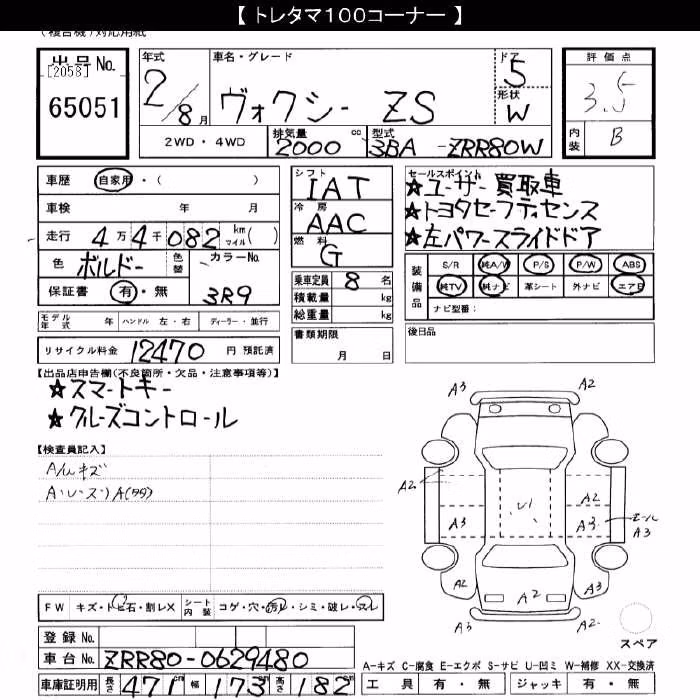 【 トレタマ100コーナー 】
(複合機)対応用紙
出品No.
[2058]
65051
年式 2/8月
車名・グレード
ヴォクシー ZS
ドア 5
形状 W
評価点
3.5
内装 B
2WD・4WD
排気量 2000 cc
型式 3BA -ZRR80W
車歴 自家用・( )
車検 年 月
走行 4万4千082 km マイル( )
色 ボルドー 色替 カラーNo. 3R9
保証書 有・無
モデル年式 年 ハンドル 左・右 ディーラー・並行
リサイクル料金 12470 円 預託済
シフト IAT
冷房 AAC
燃料 G
乗車定員 8 名
積載量 kg
総重量 kg
書類期限
月 日
セールスポイント
★ユーザー買取車
★トヨタセーフティセンス
★左パワースライドドア
装備品
S/R 純A/W P/S P/W ABS
純TV 純ナビ 革シート 外ナビ エアB
ナビ型番:
後日品
【出品店申告欄(不良箇所・欠品・注意事項等)】
★スマートキー
★クルーズコントロール
【検査員記入】
A/Wキズ
FW キズ・トビ石・割レX シート内装 コゲ・穴・汚レ・シミ・破レ・スレ
登録No.
車台No. ZRR80-0629480
車庫証明用 長さ 471cm 幅 173cm 高さ 182cm
A3 A2
A3 A2
A2 A2
A3 A3 モール A3
A2 A2 A2 A3
スペア
A-キズ C-腐食 E-エクボ S-サビ U-凹ミ W-補修 XX-交換済
工具 有・無 ジャッキ 有・無